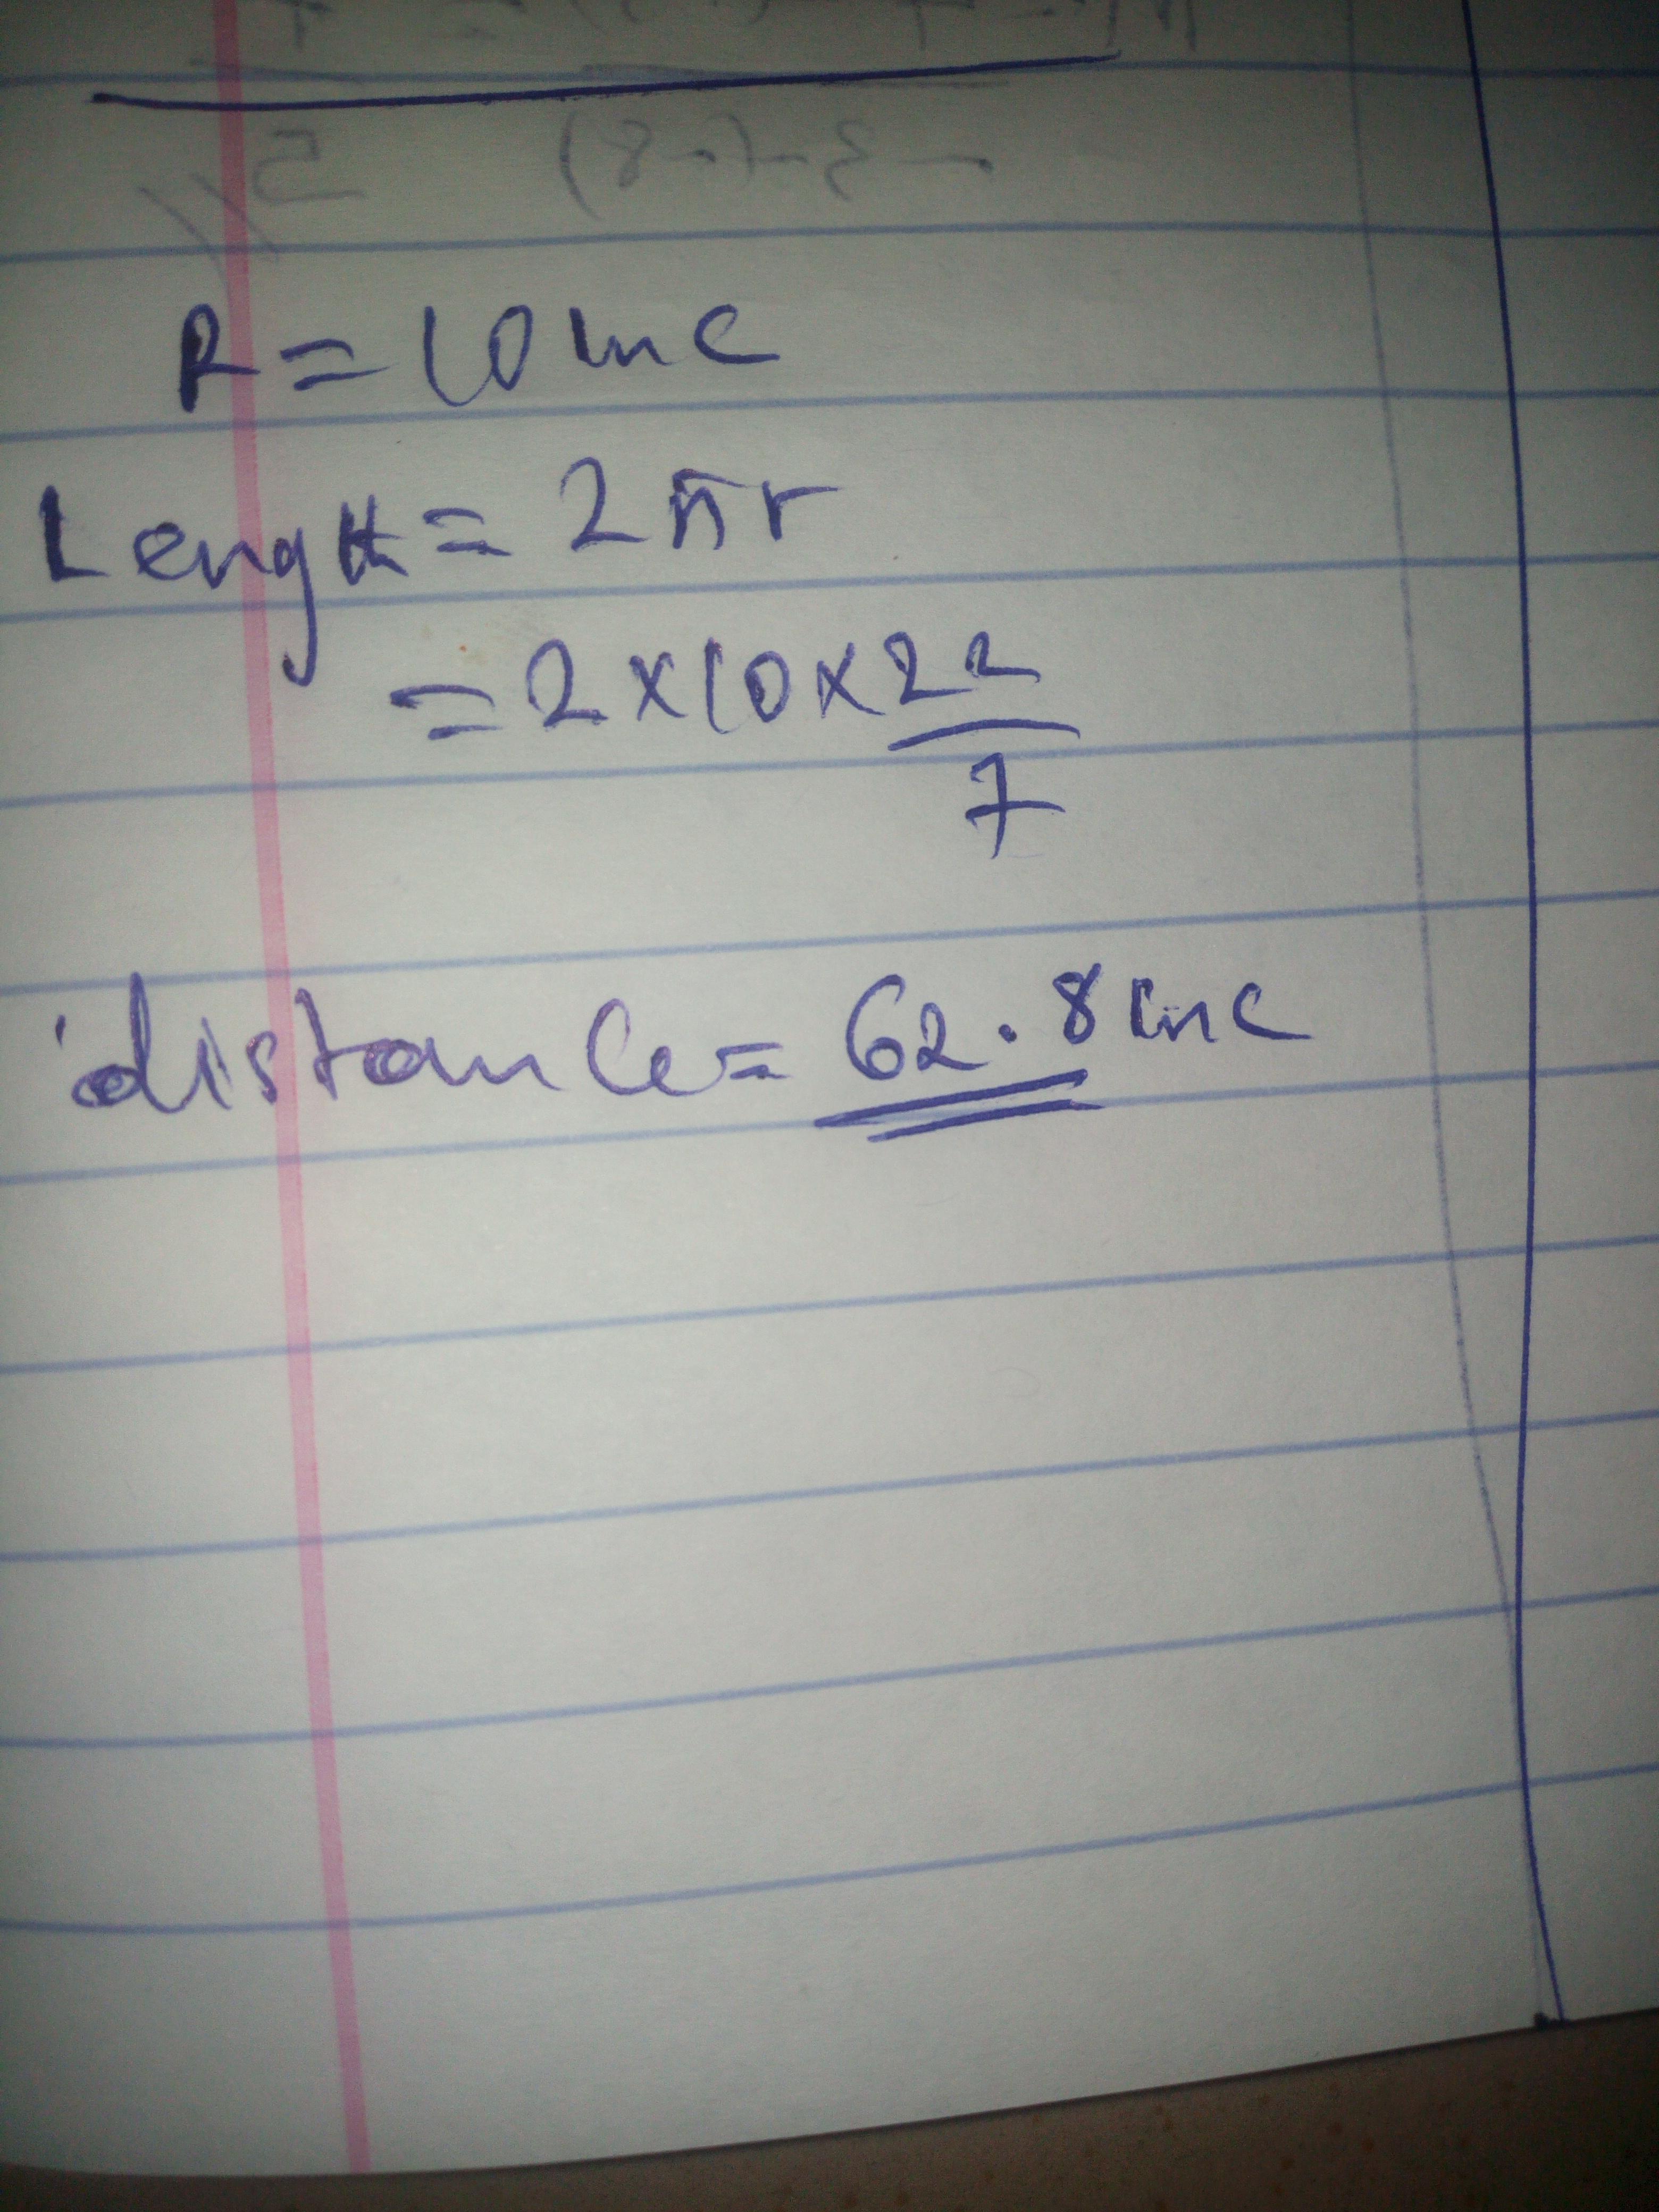 R = 10 inc
Length = 2πr
= 2 × 10 × 22/7
distance = 62.8 inc